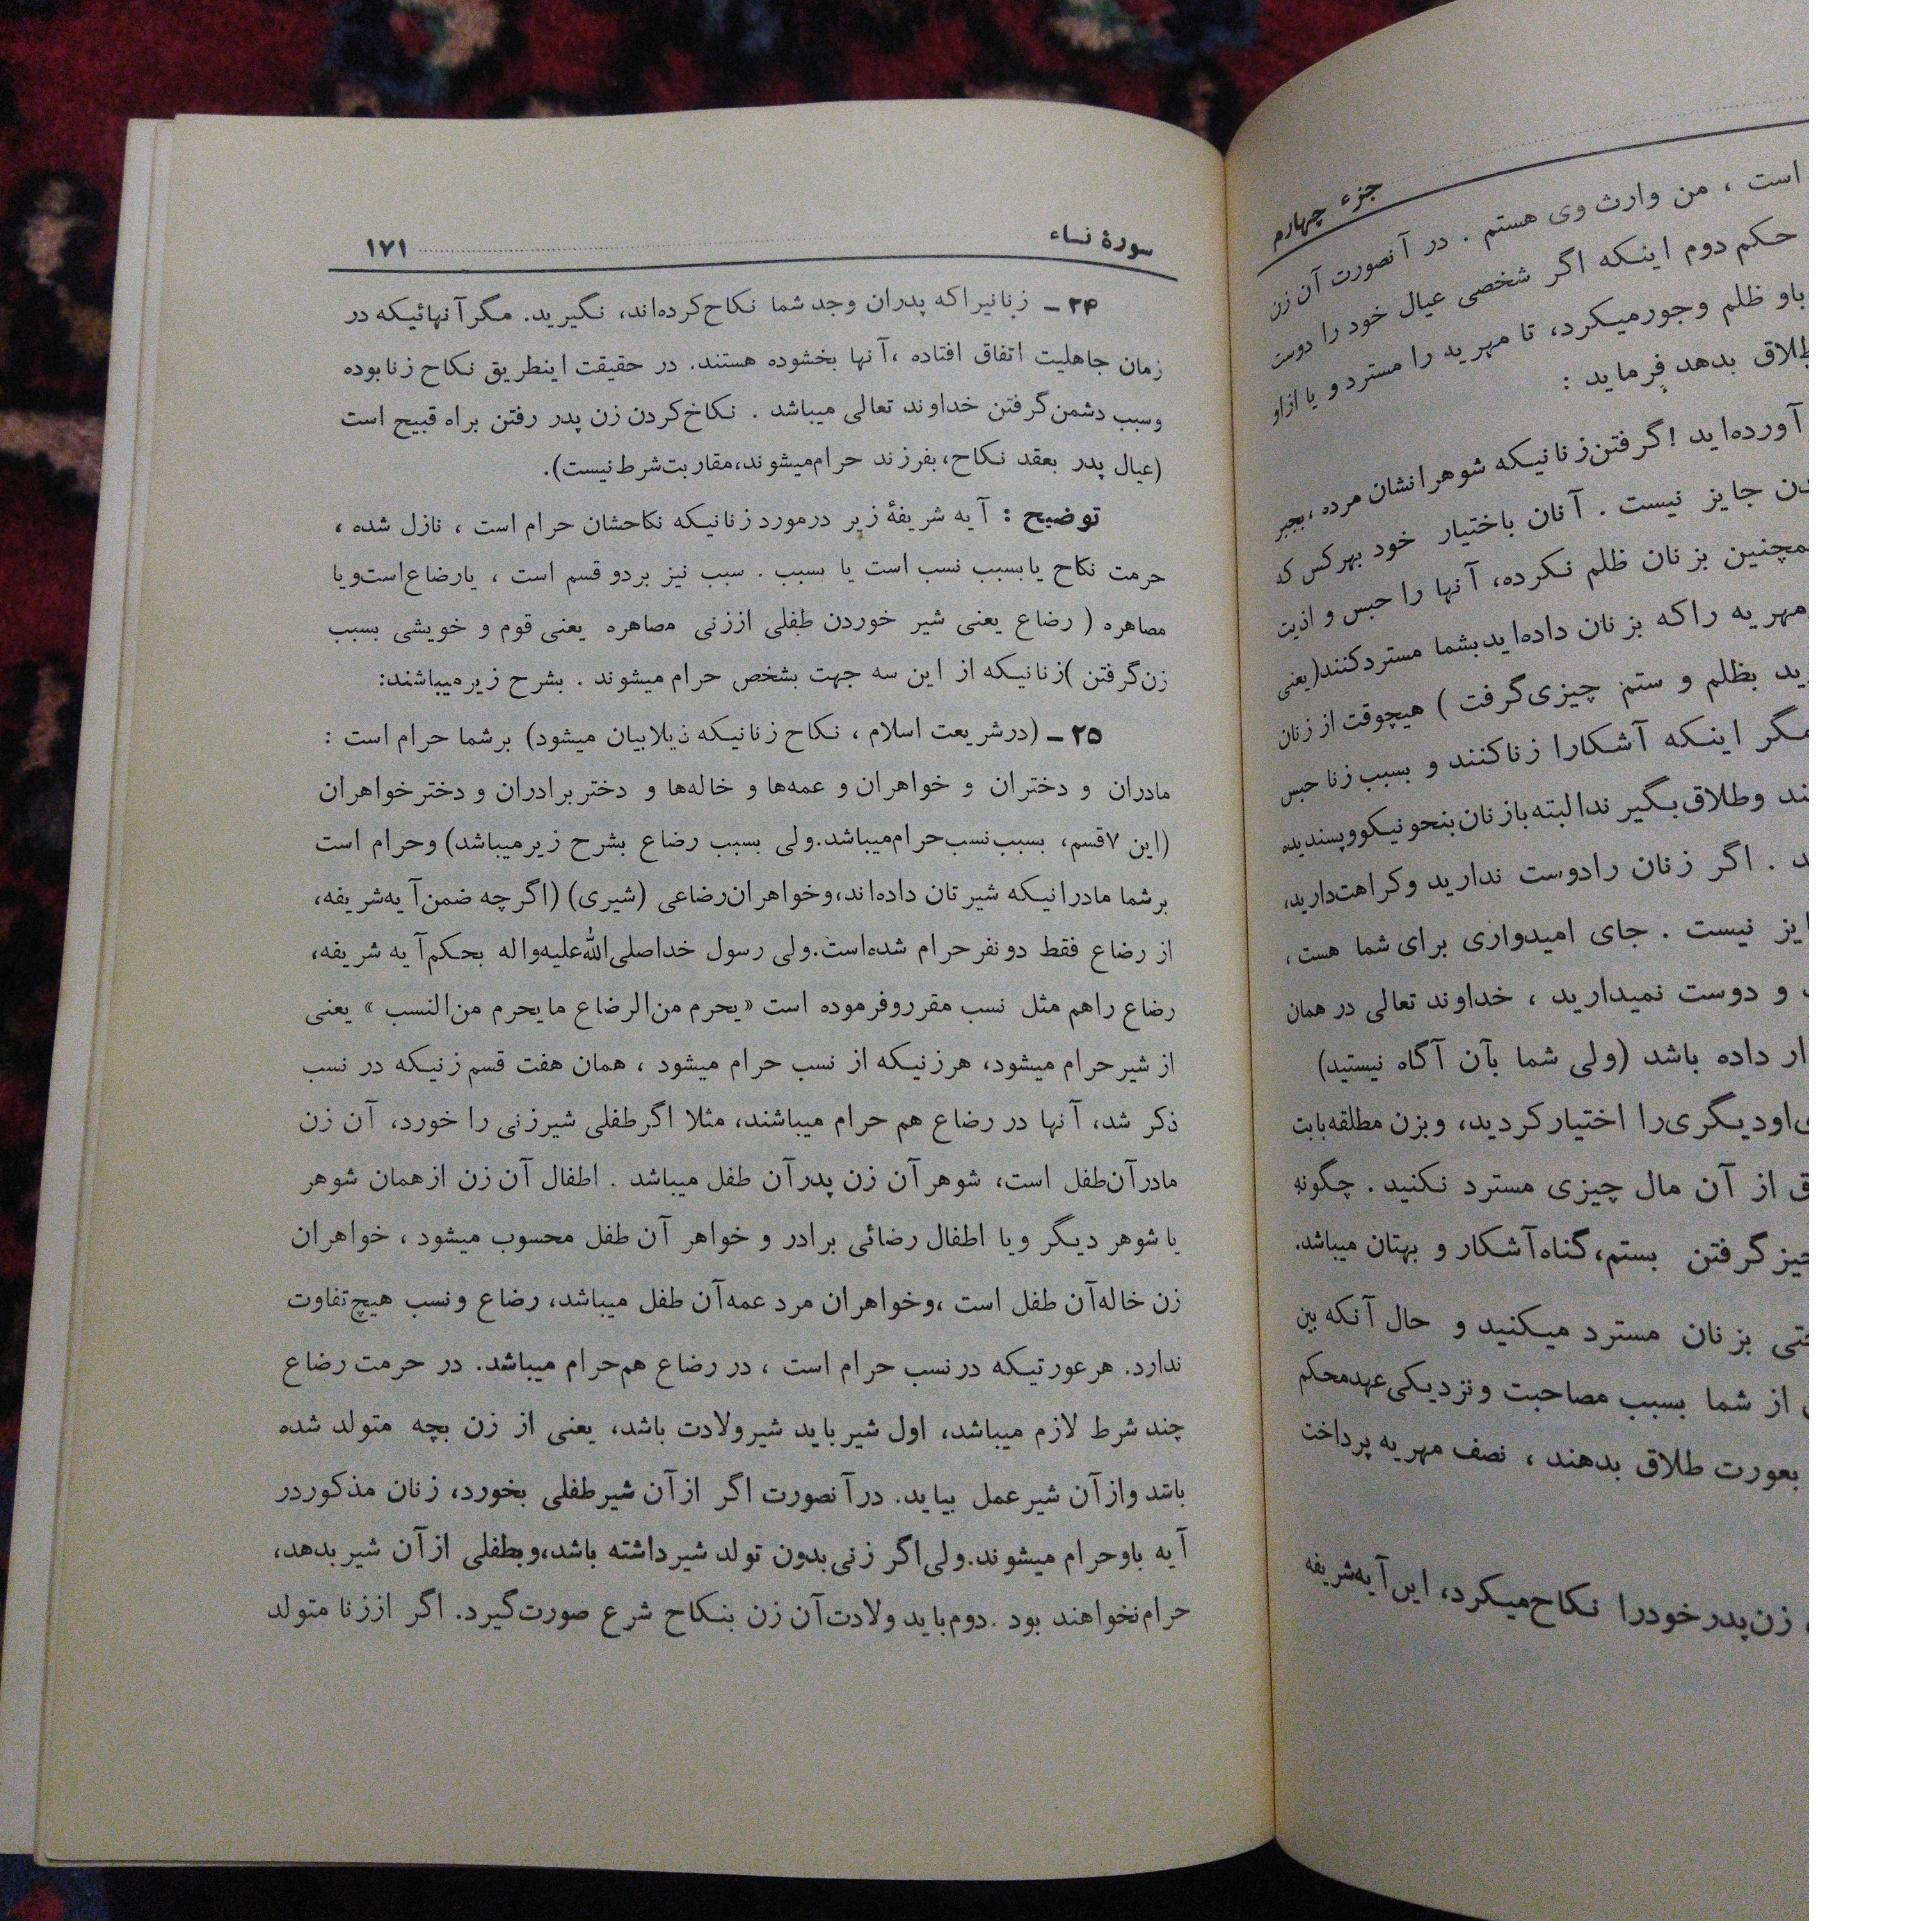 جزء چهارم
است ، من وارث وی هستم . در آنصورت آن زن
حکم دوم اینکه اگر شخصی عیال خود را دوست
باو ظلم وجورمیکرد، تا مهریه را مسترد و یا ازاو
طلاق بدهد فرماید :
آورده‌اید !گرفتن‌زنانیکه شوهرانشان مرده ،بجبر
جایز نیست . آنان باختیار خود بهرکس که
همچنین بزنان ظلم نکرده، آنها را حبس و اذیت
مهریه راکه بزنان داده‌ایدبشما مستردکنند(یعنی
بظلم و ستم چیزی‌گرفت ) هیچوقت اززنان
مگر اینکه آشکارا زناکنند و بسبب زنا حبس
وطلاق‌بگیرندالبته‌بازنان‌بنحونیکووپسندیده
. اگر زنان رادوست ندارید وکراهت‌دارید،
نیست . جای امیدواری برای شما هست ،
و دوست نمیدارید ، خداوند تعالی در همان
داده باشد (ولی شما بآن آگاه نیستید)
اودیگری‌را اختیارکردید، وبزن مطلقه‌بابت
از آن مال چیزی مسترد نکنید . چگونه
چیزگرفتن بستم،گناه‌آشکار و بهتان میباشد.
بزنان مسترد میکنید و حال آنکه بین
از شما بسبب مصاحبت ونزدیکی‌عهدمحکم
بعورت طلاق بدهند ، نصف مهریه پرداخت
زن‌پدرخودرا نکاح‌میکرد، این‌آیه‌شریفه
سورهٔ نساء ۱۷۱
۲۴ ـ زنانیراکه پدران وجد شما نکاح‌کرده‌اند، نگیرید. مگرآنهائیکه در
زمان جاهلیت اتفاق افتاده ،آنها بخشوده هستند. در حقیقت اینطریق نکاح زنابوده
وسبب دشمن‌گرفتن خداوند تعالی میباشد . نکاخ‌کردن زن پدر رفتن براه قبیح است
(عیال پدر بعقد نکاح،بفرزند حرام‌میشوند،مقاربت‌شرط‌نیست).
توضیح : آیه شریفهٔ زیر درمورد زنانیکه نکاحشان حرام است ، نازل شده ،
حرمت نکاح یابسبب نسب است یا بسبب . سبب نیز بردو قسم است ، یارضاع‌است‌ویا
مصاهره ( رضاع یعنی شیر خوردن طفلی اززنی مصاهره یعنی قوم و خویشی بسبب
زن‌گرفتن )زنانیکه از این سه جهت بشخص حرام میشوند . بشرح زیرمیباشند:
۲۵ ـ (درشریعت اسلام ، نکاح زنانیکه ذیلابیان میشود) برشما حرام است :
مادران و دختران و خواهران و عمه‌ها و خاله‌ها و دختربرادران و دخترخواهران
(این ۷قسم، بسبب‌نسب‌حرام‌میباشد.ولی بسبب رضاع بشرح زیرمیباشد) وحرام است
برشما مادرانیکه شیرتان داده‌اند،وخواهران‌رضاعی (شیری) (اگرچه ضمن‌آیه‌شریفه،
از رضاع فقط دونفرحرام شده‌است.ولی رسول خداصلی‌الله‌علیه‌واله بحکم‌آیه شریفه،
رضاع راهم مثل نسب مقرروفرموده است «یحرم من‌الرضاع مایحرم من‌النسب » یعنی
از شیرحرام میشود، هرزنیکه از نسب حرام میشود ، همان هفت قسم زنیکه در نسب
ذکر شد، آنها در رضاع هم حرام میباشند، مثلا اگرطفلی شیرزنی را خورد، آن زن
مادرآن‌طفل است، شوهرآن زن پدرآن طفل میباشد . اطفال آن زن ازهمان شوهر
یا شوهر دیگر ویا اطفال رضائی برادر و خواهر آن طفل محسوب میشود ، خواهران
زن خاله‌آن طفل است ،وخواهران مرد عمه‌آن طفل میباشد، رضاع ونسب هیچ‌تفاوت
ندارد. هرعورتیکه درنسب حرام است ، در رضاع هم‌حرام میباشد. در حرمت رضاع
چند شرط لازم میباشد، اول شیرباید شیرولادت باشد، یعنی از زن بچه متولد شده
باشد وازآن شیرعمل بیاید. درآنصورت اگر ازآن شیرطفلی بخورد، زنان مذکوردر
آیه باوحرام میشوند.ولی‌اگر زنی‌بدون تولد شیرداشته باشد،وبطفلی ازآن شیربدهد،
حرام‌نخواهند بود .دوم‌باید ولادت‌آن زن بنکاح شرع صورت‌گیرد. اگر اززنا متولد